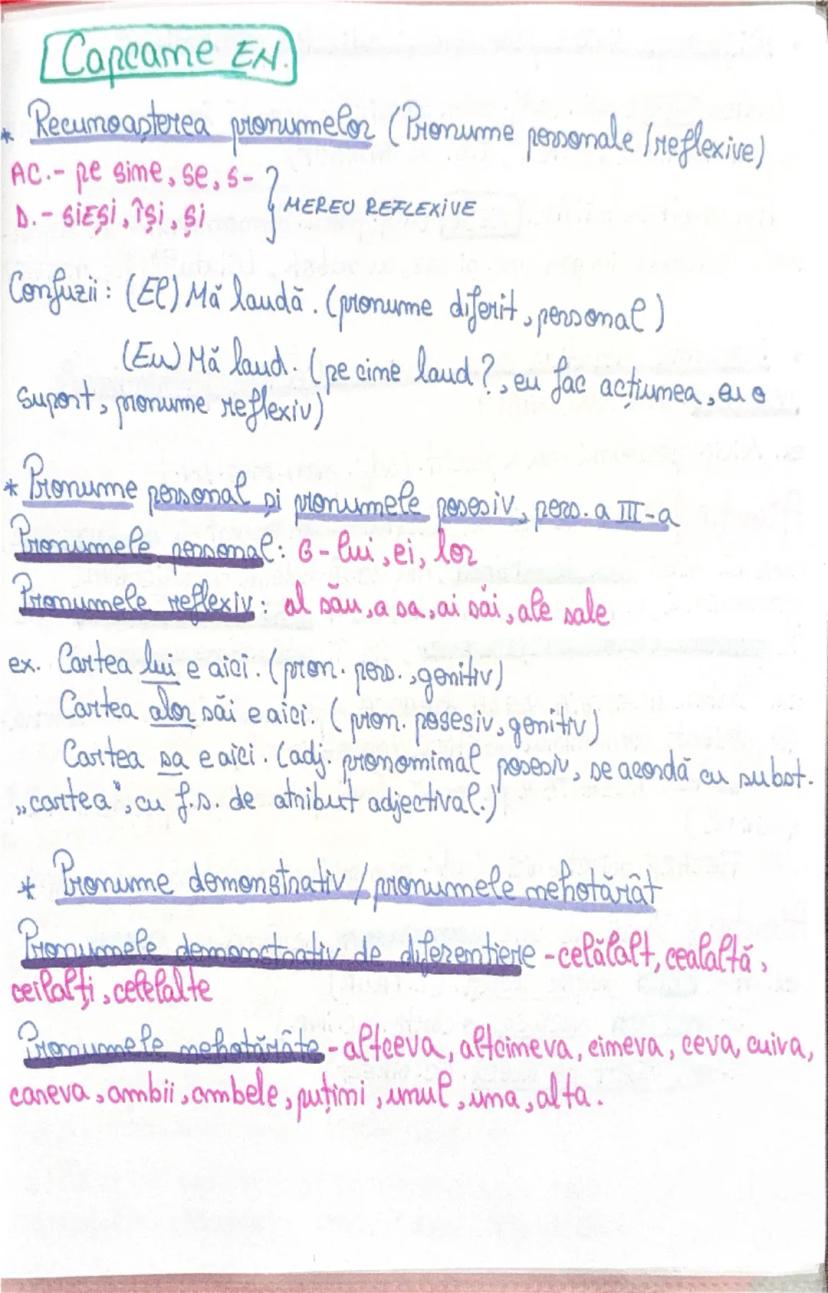 Capcane EN.
* Recunoașterea pronumelor (Pronume personale / reflexive)
AC. - pe sine, se, s-
D. - sieși, își, și
MEREU REFLEXIVE
Confuzii: (El) Mă laudă. (pronume diferit, personal)
(Eu) Mă laud. (pe cine laud?, eu fac acțiunea, eu o
suport, pronume reflexiv)
* Pronume personal și pronumele posesiv, pers. a III-a
Pronumele personal: G - lui, ei, lor
Pronumele reflexiv: al său, a sa, ai săi, ale sale
ex. Cartea lui e aici. (pron. pers., genitiv)
Cartea alor săi e aici. (pron. posesiv, genitiv)
Cartea sa e aici. (adj. pronominal posesiv, se acordă cu subst.
„cartea”, cu f.s. de atribut adjectival.)
* Pronume demonstrativ / pronumele nehotărât
Pronumele demonstrativ de diferențiere - celălalt, cealaltă,
ceilalți, celelalte
Pronumele nehotărâte - altceva, altcineva, cineva, ceva, cuiva,
careva, ambii, ambele, puțini, unul, una, alta.